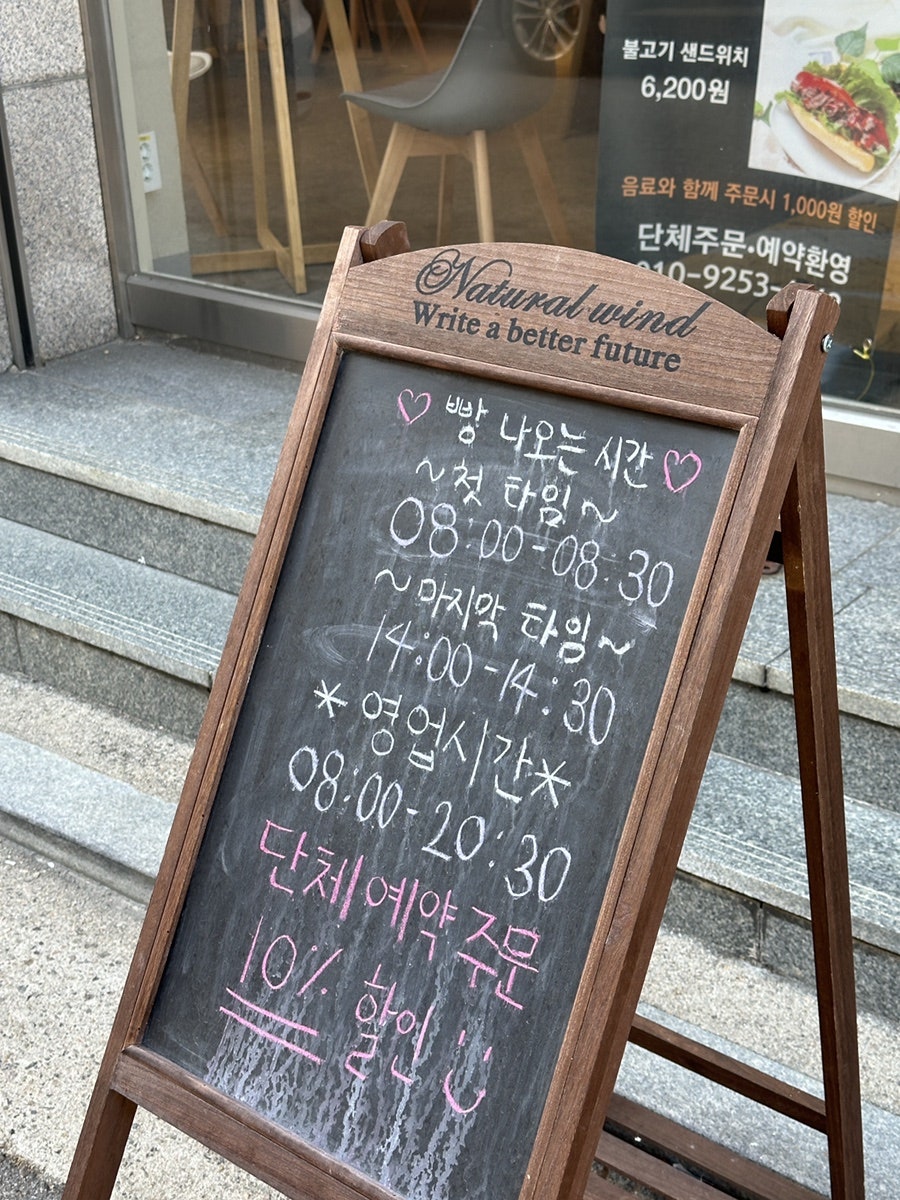 불고기 샌드위치
6,200원
음료와 함께 주문시 1,000원 할인
단체주문·예약환영
Natural wind
Write a better future
♡ 빵 나오는 시간 ♡
~첫 타임~
08:00-08:30
~마지막 타임~
14:00-14:30
*영업시간*
08:00-20:30
단체예약 주문
10% 할인 :)